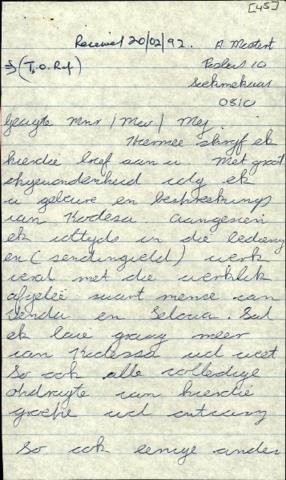 [45]
Received 20/02/92. A. Mostert
⇒ (T.O. Ref) Posbus 10
Soekmekaar
0810
Geagte Mnr / Mev / Mej.
Hiermee skryf ek
hierdie brief aan u. Met groot
ek
u en
van Kodesa. Aangesien
ek in die
en (sendingveld) werk
veral met die werklik
afgeleë swart mense van
Venda en Selowa. Sal
ek baie graag meer
van Kodessa wil weet
So ook alle volledige
van hierdie
wil ontvang
So ook enige ander